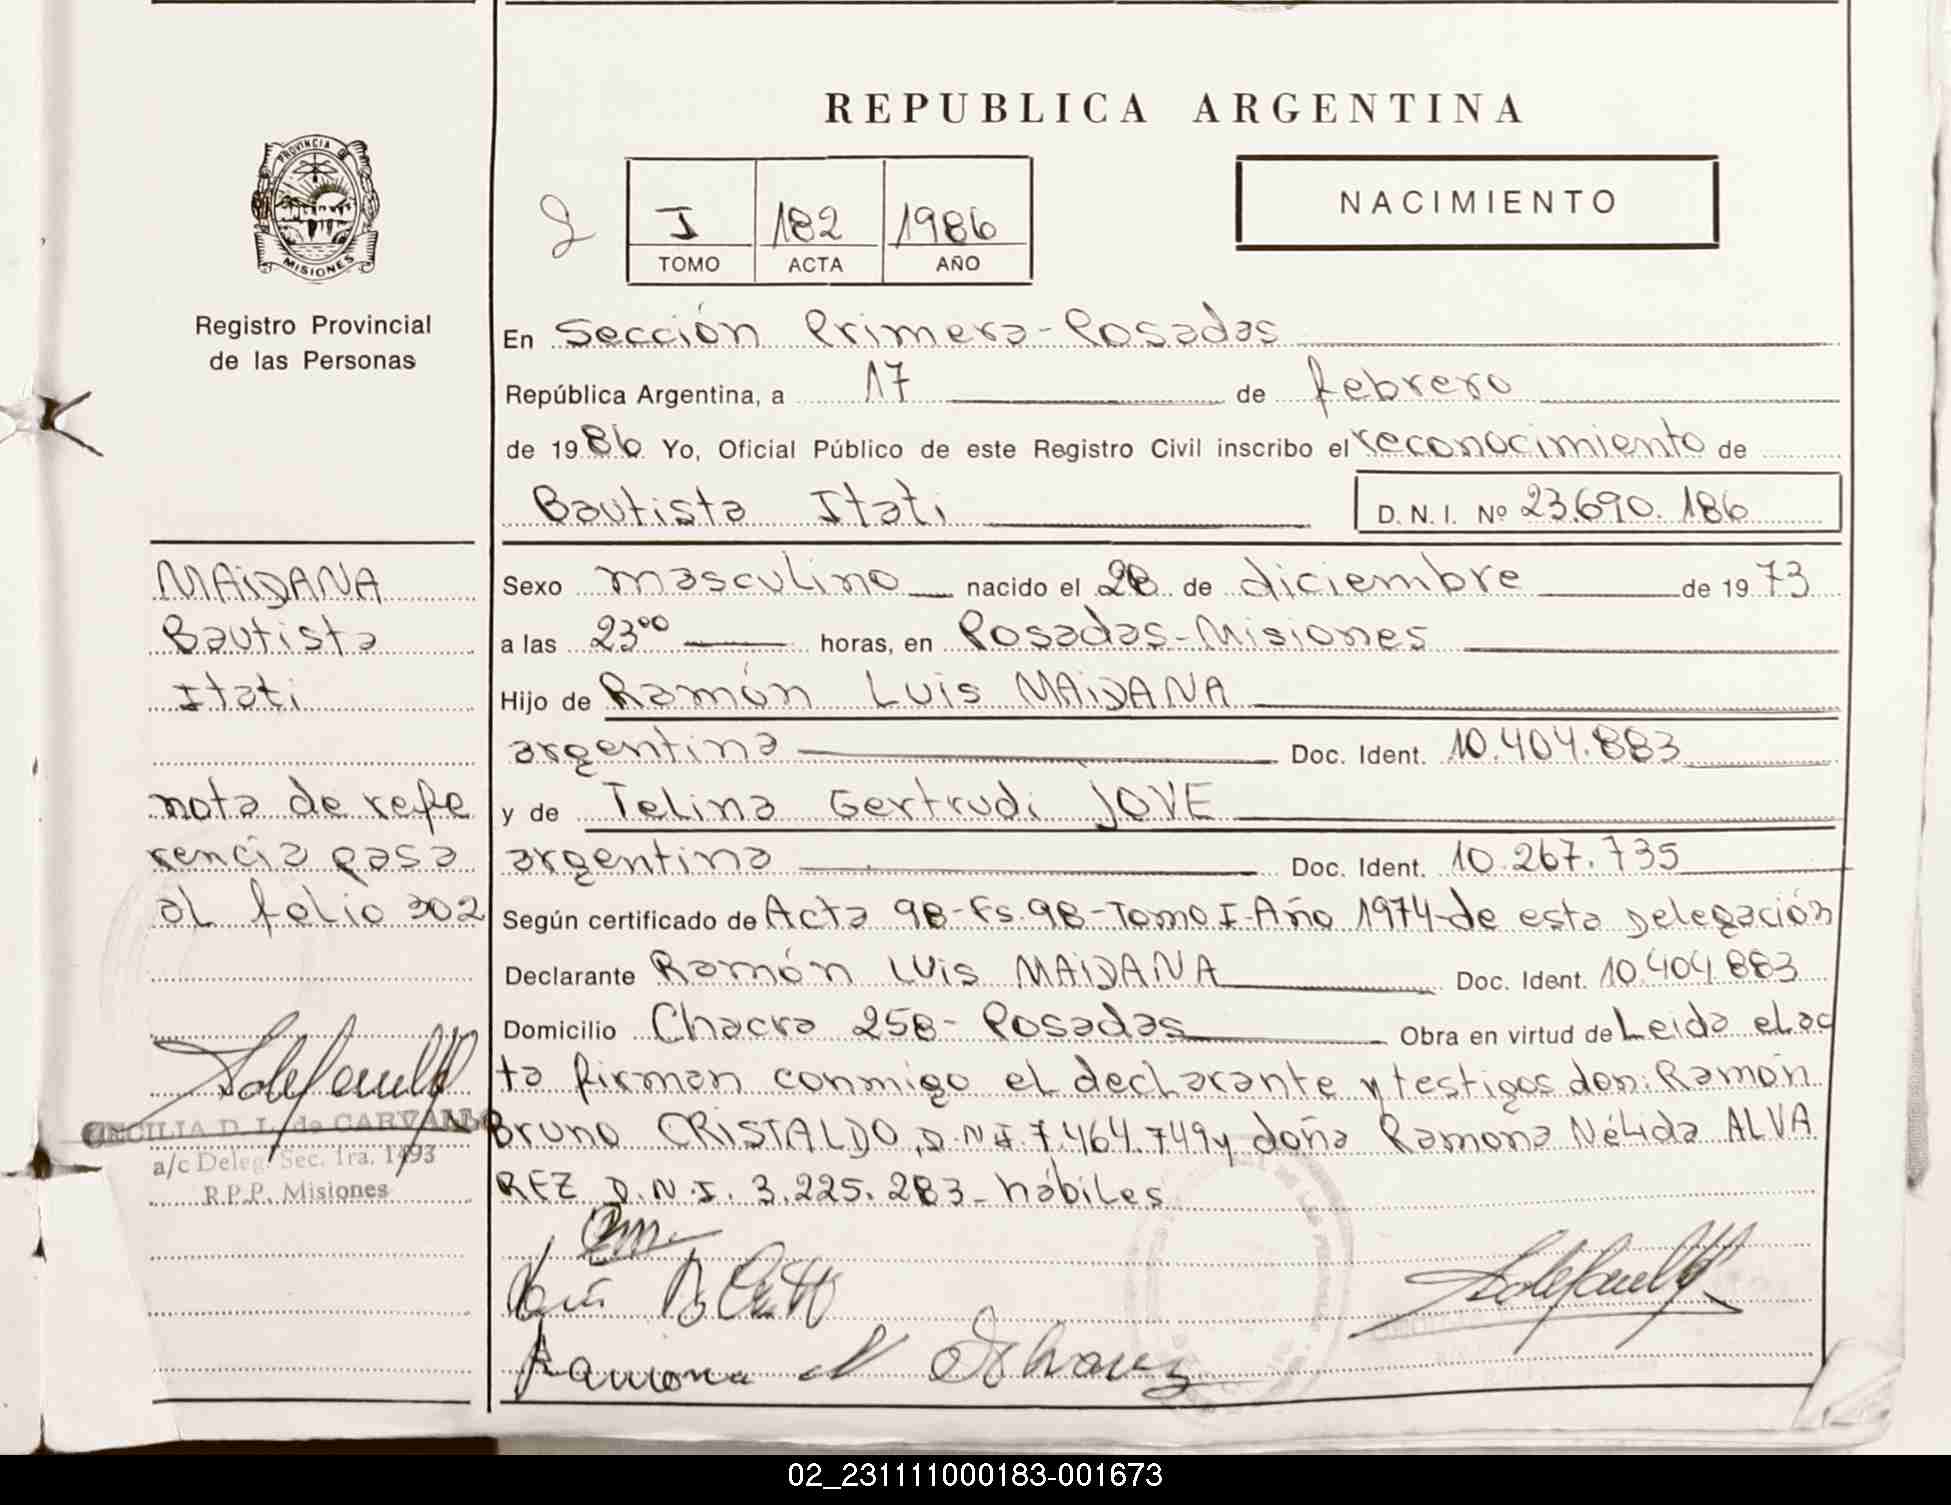 REPUBLICA ARGENTINA
PROVINCIA DE
MISIONES
Registro Provincial
de las Personas
I 182 1986
TOMO ACTA AÑO
NACIMIENTO
En Sección Primera-Posadas
República Argentina, a 17 de febrero
de 1986 Yo, Oficial Público de este Registro Civil inscribo el reconocimiento de
Bautista Itati D.N.I. Nº 23.690.186
MAIDANA
Bautista
Itati
nota de refe
rencia pasa
al folio 302
CECILIA D. L. de CARVALLO
a/c Deleg. Sec. 1ra. 1493
R.P.P. Misiones
Sexo masculino nacido el 28 de diciembre de 1973
a las 23⁰⁰ horas, en Posadas-Misiones
Hijo de Ramón Luis MAIDANA
argentina Doc. Ident. 10.404.883
y de Telina Gertrudi JOVE
argentina Doc. Ident. 10.267.735
Según certificado de Acta 98-Fs.98-Tomo I-Año 1974-de esta Delegación
Declarante Ramón Luis MAIDANA Doc. Ident. 10.404.883
Domicilio Chacra 258- Posadas Obra en virtud de Leida el ac
ta firman conmigo el declarante y testigos don: Ramón
Bruno CRISTALDO, D.N.I. 7.464.749 y doña Ramona Nélida ALVA
REZ D.N.I. 3.225.283- hábiles
Ramona N
02_231111000183-001673